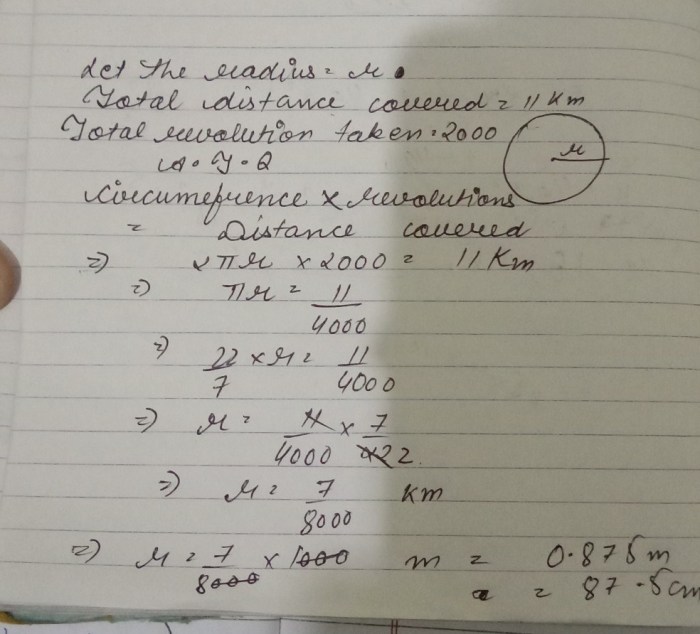 Let the radius = r.
Total distance covered = 11 Km
Total revolution taken = 2000
r
Circumefrence × revolutions
= Distance covered
=> 2πr × 2000 = 11 Km
=> πr = 11/4000
=> 22/7 × r = 11/4000
=> r = 11/4000 × 7/22 2
=> r = 7/8000 Km
=> r = 7/8000 × 1000 m = 0.875 m
= 87.5cm